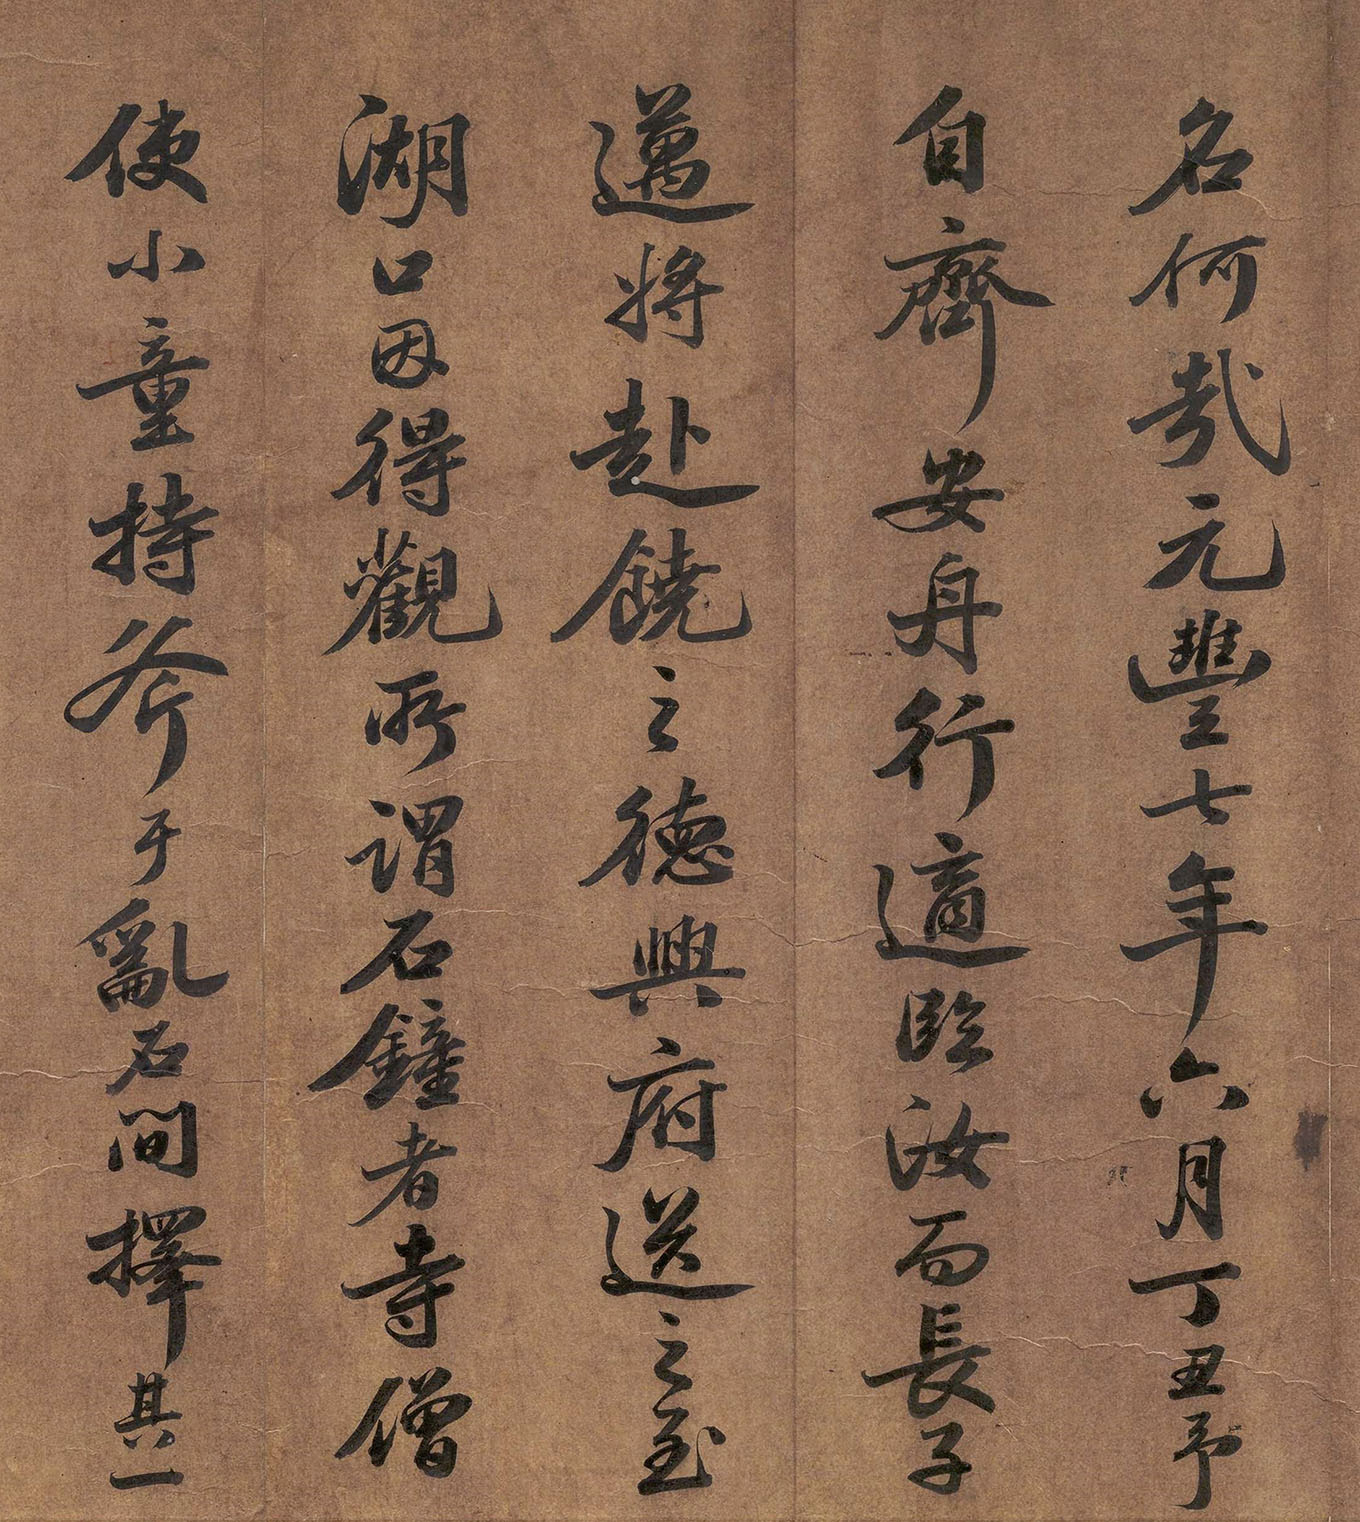 名何哉元豐七年六月丁丑予
自齊安舟行適臨汝而長子
邁將赴饒之德興府送之至
湖口因得觀所謂石鐘者寺僧
使小童持斧于亂石間擇其一